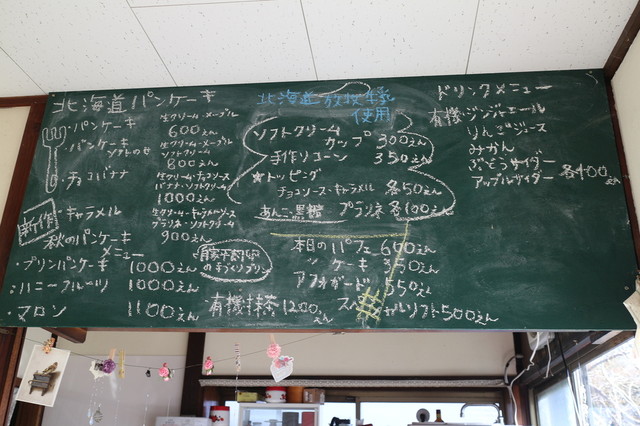 北海道パンケーキ
・パンケーキ 生クリーム・メープル
600えん
・パンケーキ ソフトのせ 生クリーム・メープル ソフトクリーム
800えん
・チョコバナナ 生クリーム・チョコソース バナナ・ソフトクリーム
1000えん
新作 キャラメル 生クリーム・キャラメルソース プラリネ・ソフトクリーム
900えん
秋のパンケーキ
メニュー
・プリンパンケーキ 1000えん
・ハニーフルーツ 1000えん
・マロン 1100えん
の手づくりプリン
北海道放牧牛乳
使用
ソフトクリーム
カップ 300えん
手作りコーン 350えん
★トッピング
チョコソース・キャラメル 各50えん
あんこ・黒糖 プラリネ 各100えん
本日のパフェ 600えん
〃 ケーキ 350えん
アフォガード 550えん
・有機抹茶 1200えん
スペシャルソフト500えん
ドリンクメニュー
有機・ジンジャエール
りんごジュース
みかん
ぶどうサイダー
アップルサイダー 各400えん